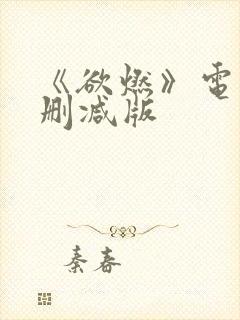 《欲燃》电
删减版
秦春